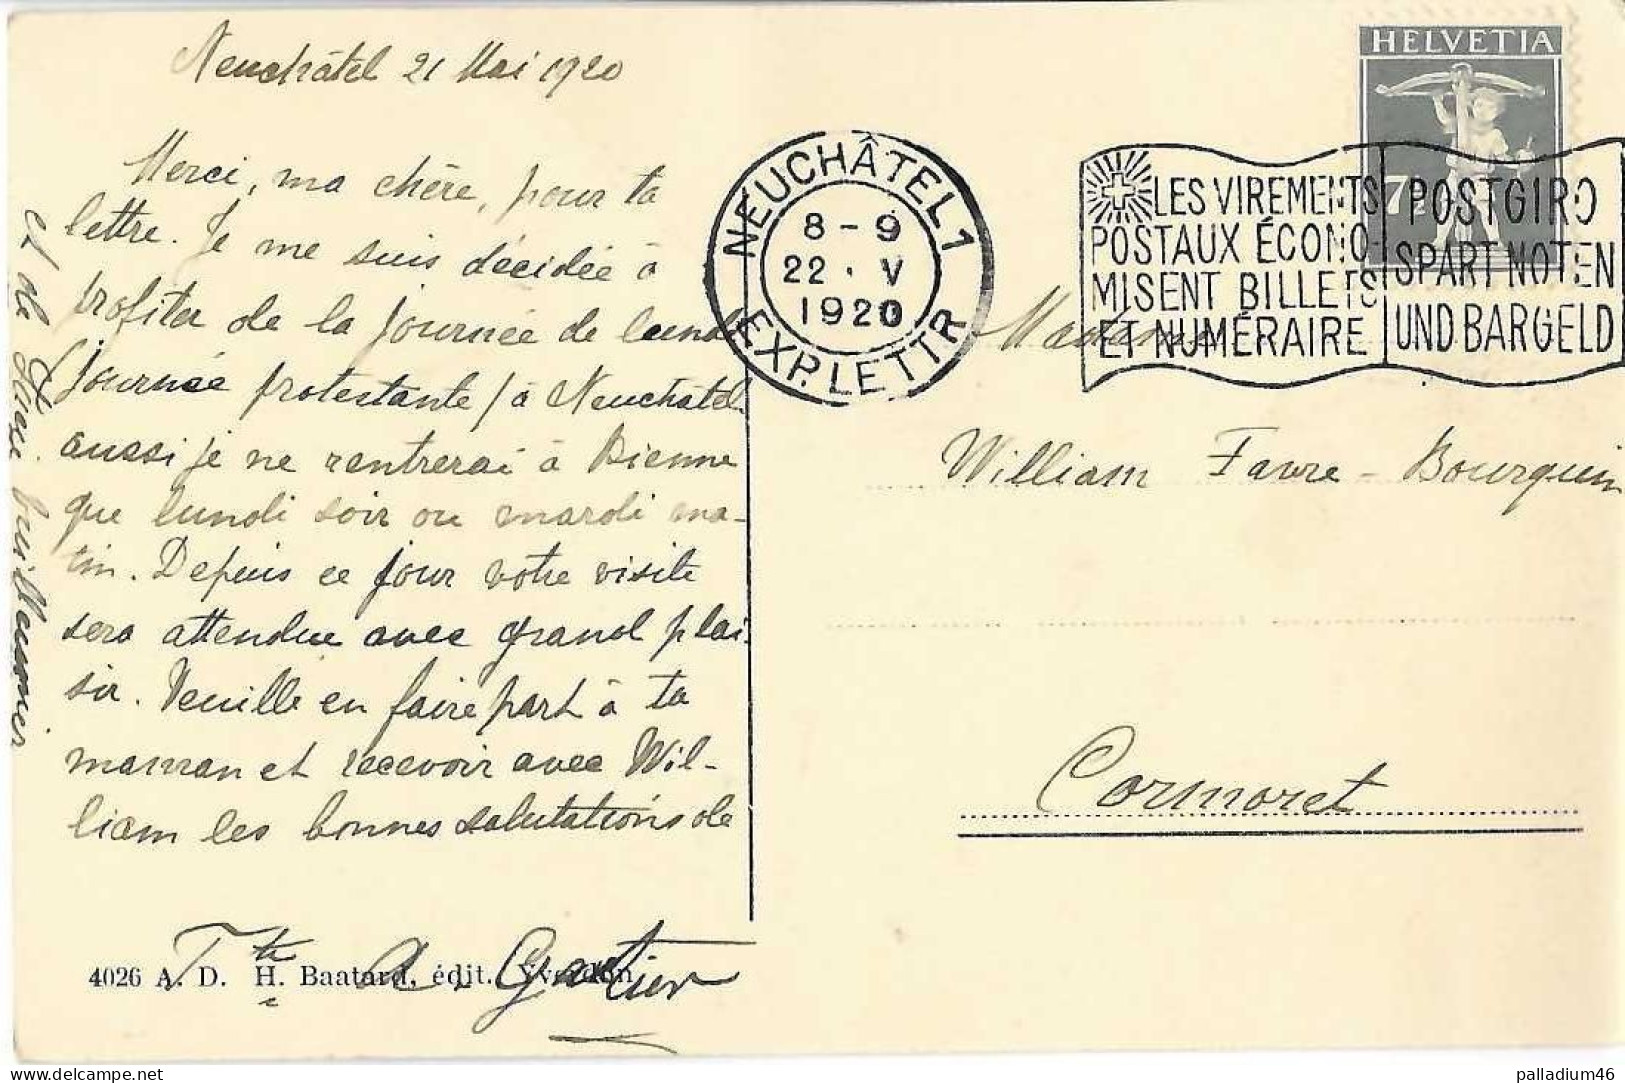 Neuchâtel 21 Mai 1920
Merci, ma chère, pour ta
lettre. Je me suis décidée à
profiter de la journée de lundi
journée protestante / à Neuchâtel
aussi je ne rentrerai à Bienne
que lundi soir ou mardi ma-
tin. Depuis ce jour votre visite
sera attendue avec grand plai-
sir. Veuille en faire part à ta
maman et recevoir avec Wil-
liam les bonnes salutations de
Tte A. Gautier
et de
4026 A. D. H. Baatard, édit. Yverdon
NEUCHÂTEL 1
8-9
22 · V
1920
EXP. LETTR
LES VIREMENTS
POSTAUX ÉCONO-
MISENT BILLETS
ET NUMÉRAIRE
POSTGIRO
SPART NOTEN
UND BARGELD
HELVETIA
7½
Madame
William Favre-Bourquin
Cormoret
delcampe.net
palladium46